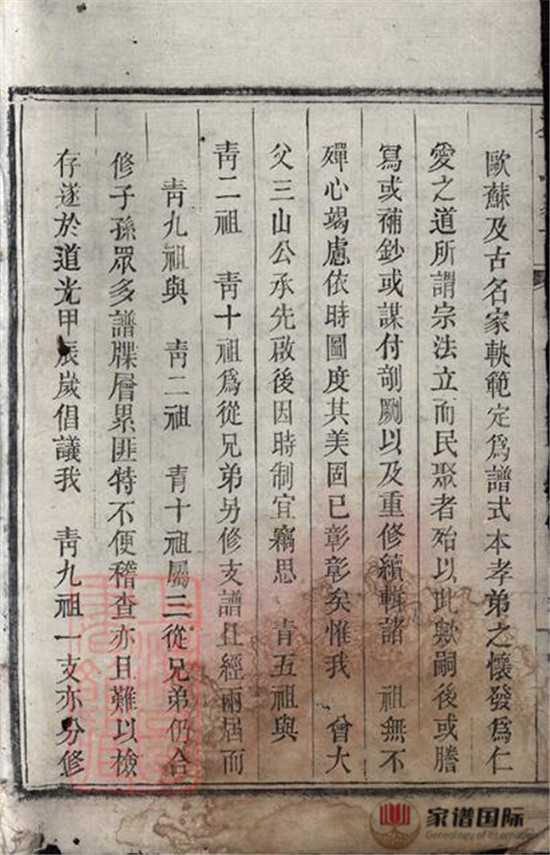 歐蘇及古名家軌範定爲譜式本孝弟之懷發爲仁
愛之道所謂宗法立而民聚者殆以此歟嗣後或謄
寫或補鈔或謀付剞劂以及重修續輯諸　祖無不
殫心竭慮依時圖度其美固已彰彰矣惟我　曾大
父三山公承先啟後因時制宜竊思　青五祖與
靑二祖　靑十祖爲從兄弟另修支譜且經兩屆而
靑九祖與　靑二祖　青十祖屬三從兄弟仍合
修子孫眾多譜牒層累匪特不便稽查亦且難以檢
存遂於道光甲辰歲倡議我　靑九祖一支亦分修
家谱国际
Genealogy of International